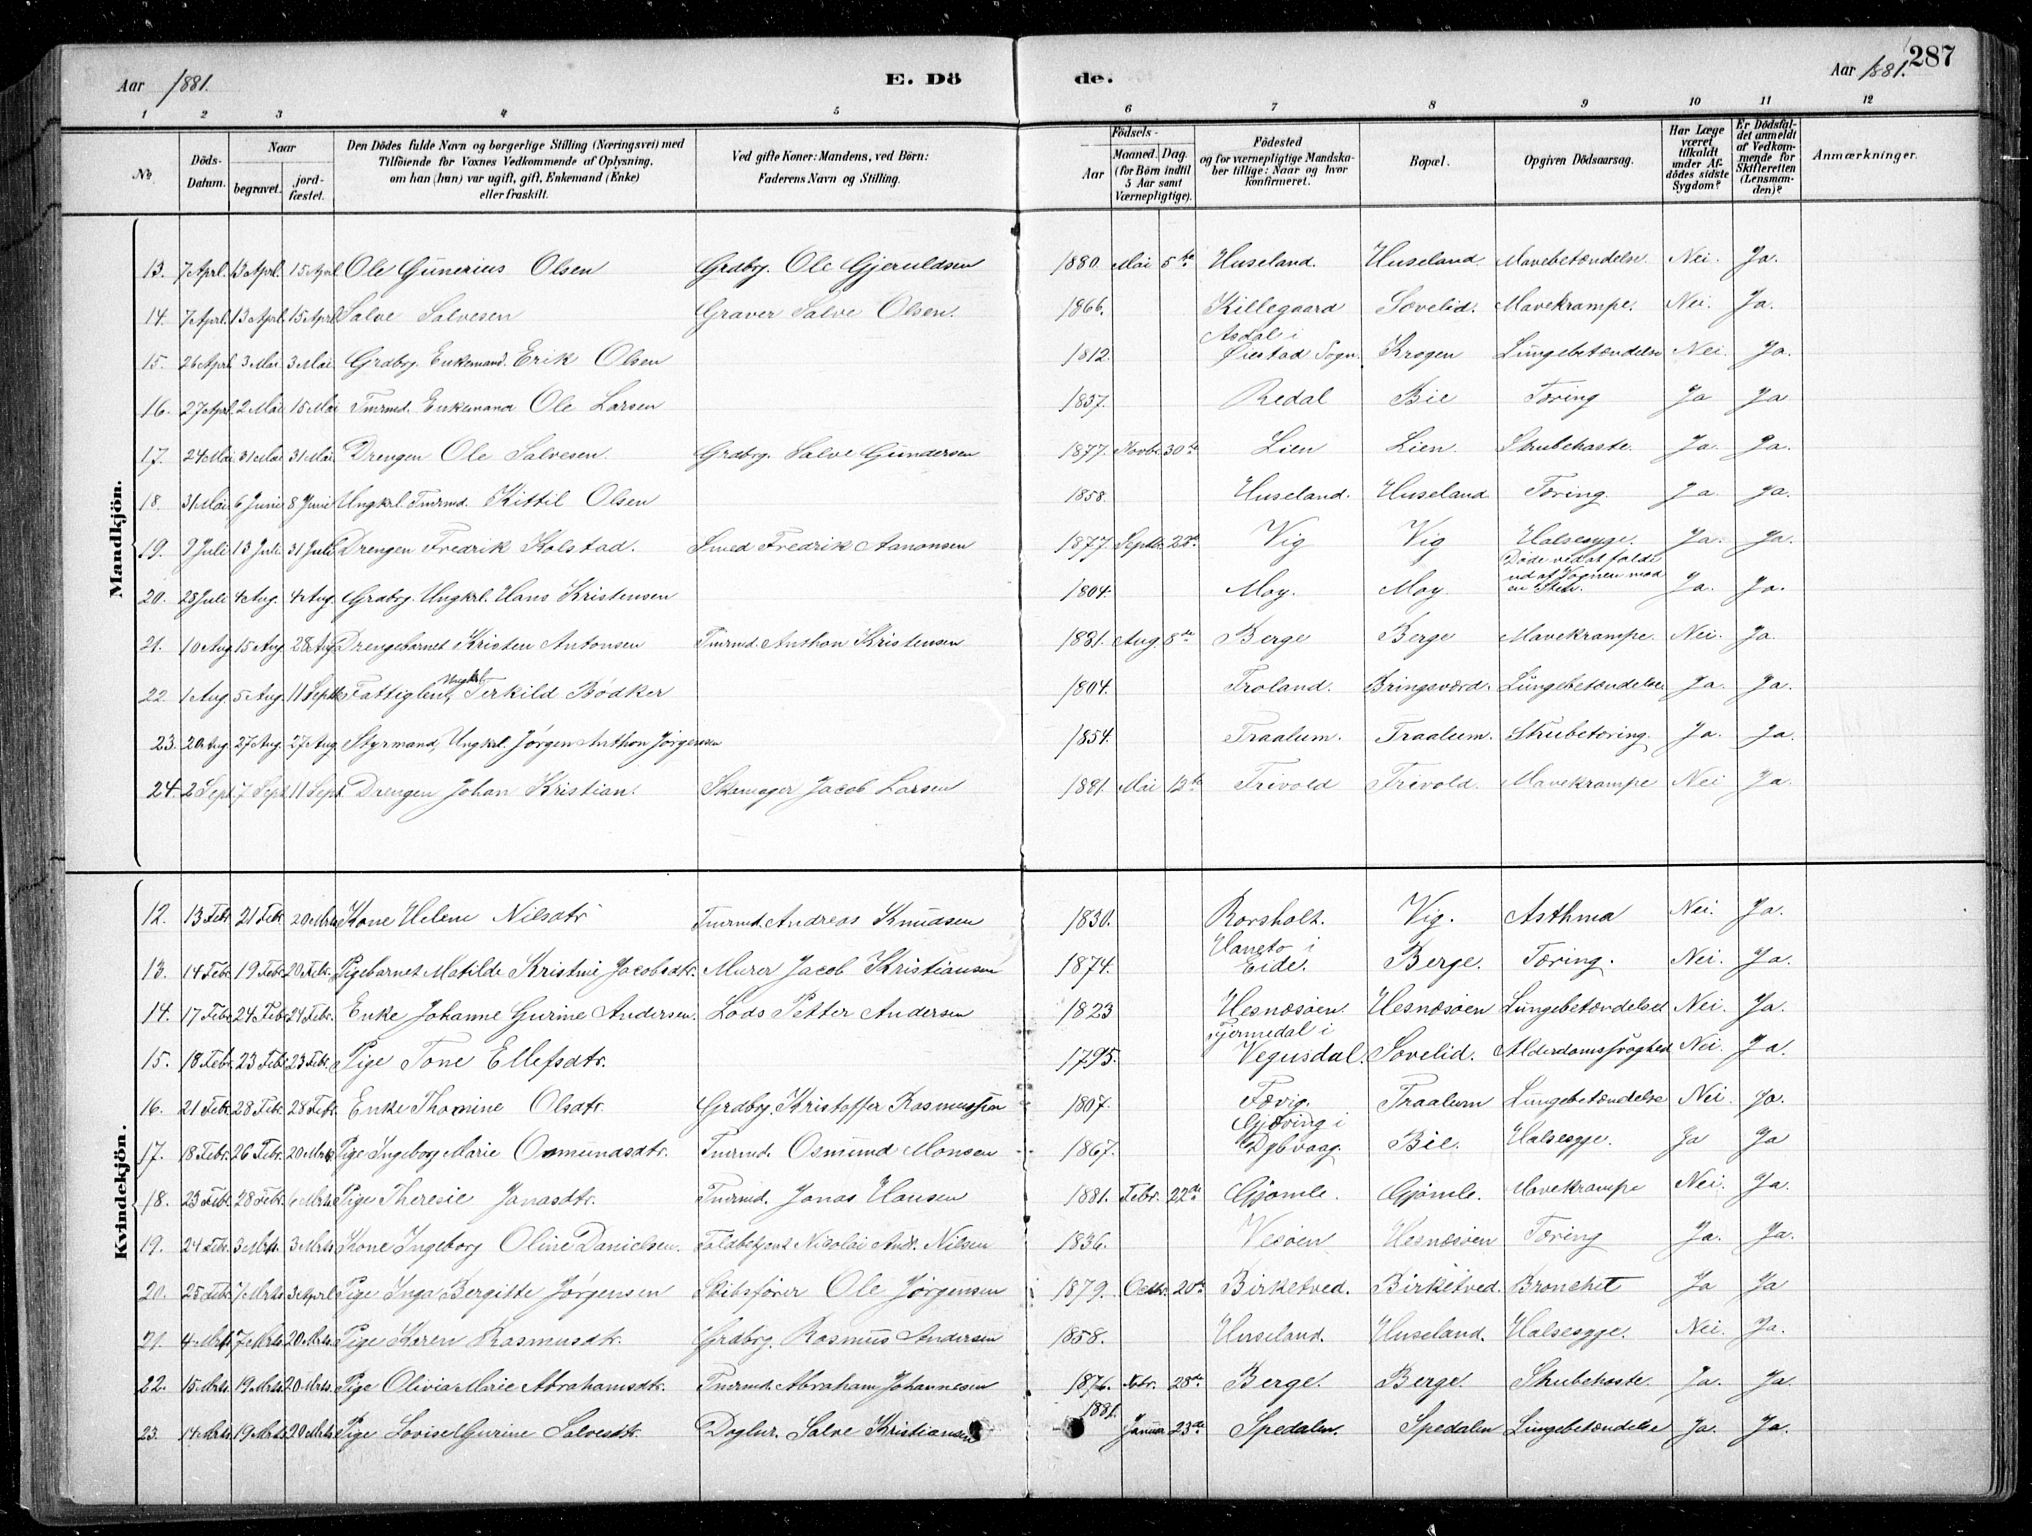 287
Aar 1881. E. Dö de. Aar 1881.
1 2 3 4 5 6 7 8 9 10 11 12
No. Döds-Datum. Naar begravet. jordfæstet. Den Dödes fulde Navn og borgerlige Stilling (Næringsvei) med Tilföiende for Voxnes Vedkommende af Oplysning, om han (hun) var ugift, gift, Enkemand (Enke) eller fraskilt. Ved gifte Koner: Mandens, ved Börn: Faderens Navn og Stilling. Födsels- Aar Maaned. Dag. (for Börn indtil 5 Aar samt Værnepligtige). Födested og for værnepligtige Mandskaber tillige: Naar og hvor konfirmeret. Bopæl. Opgiven Dödsaarsag. Har Læge været tilkaldt under Afdödes sidste Sygdom? Er Dödsfaldet anmeldt af Vedkommende for Skifteretten (Lensmanden)? Anmærkninger.
Mandkjön.
13. 7 Aprl. 13 Aprl. 15 Aprl Ole Gunerius Olsen Grdbrg. Ole Gjeruldsen 1880. Mai 5te Huseland. Huseland. Mavebetændelse Nei. Ja.
14. 7 Aprl. 13 Aprl. 15 Aprl. Salve Salvesen Graver Salve Olsen. 1866. Killegaard Sovelid. Mavekrampe. Nei. Ja.
15. 26 Aprl 3 Mai 3 Mai. Grdbrg. Enkemand. Erik Olsen 1812. Asdal i Øiestad Sogn. Krogen Lungebetændelse Nei. Ja.
16. 27 Aprl. 2 Mai 15 Mai Tmrmd. Enkemand Ole Larsen 1837. Redal Bie Tæring Ja Ja
17. 24 Mai 31 Mai 31 Mai. Drengen Ole Salvesen. Grdbrg. Salve Gundersen 1877. Novbr. 30te Lien Lien. Strubehoste. Ja. Ja.
18. 31 Mai 6 Juni 8 Juni Ungkrl. Tmrmd. Kittil Olsen 1858. Huseland. Huseland Tæring. Ja. Ja.
19. 9 Juli 13 Juli 31 Juli Drengen Fredrik Kolstad. Smed Fredrik Aanonsen 1877. Septbr. 28de Vig Vig Halsesyge. Ja. Ja.
20. 28 Juli 4 Aug. 4 Aug. Grdbrg. Ungkrl. Hans Kristensen 1804. Moy. Moy. Døde ved at falde ud af Vognen mod en Sten. Ja. Ja.
21. 10 Aug 15 Aug 28 Aug Drengebarnet Kristen Antonsen Tmrmd. Anthon Kristensen 1881. Aug 8de Berge Berge Mavekrampe. Nei. Ja.
22. 1 Aug 5 Aug. 11 Septbr Fattiglem, Ungkrl. Terkild Bödker 1804. Froland. Bringsværd. Lungebetændelse. Ja. Ja.
23. 20 Aug 27 Aug. 27 Aug. Styrmand, Ungkrl. Jørgen Anthon Jørgensen 1854. Traalum. Traalum. Strubetæring. Ja. Ja.
24. 2 Sept 7 Sept 11 Sept. Drengen Johan Kristian. Skomager Jacob Larsen 1881. Mai 12te Frivold Frivold. Mavekrampe Nei Ja.
Kvindekjön.
12. 13 Febr. 21 Febr. 20 Mrts Kone Helene Nilsdtr Tmrmd. Andreas Knudsen 1830. Rorsholt. Vig. Asthma Nei. Ja.
13. 14 Febr. 19 Febr. 20 Febr. Pigebarnet Matilde Kristine Jacobsdtr. Murer Jacob Kristiansen 1874. Haneto i Eide. Berge. Tæring. Nei. Ja.
14. 17 Febr. 24 Febr. 24 Febr. Enke Johanne Gurine Andersen. Lods Petter Andersen 1823 Hesnæsøen. Hesnæsøen Lungebetændelse Nei. Ja.
15. 18 Febr. 23 Febr. 23 Febr. Pige Tone Ellefsdtr. 1795. Tjermedal i Vegusdal. Sovelid. Alderdomssvaghed Nei. Ja.
16. 21 Febr. 28 Febr. 28 Febr. Enke Thomine Olsdtr. Grdbrg. Kristoffer Rasmussen 1807. Fævig. Traalum Lungebetændelse Nei. Ja.
17. 18 Febr. 26 Febr. 20 Mrts Pige Ingeborg Marie Osmundsdtr. Tmrmd. Osmund Monsen 1867. Gjæving i Dybvaag. Bie. Halsesyge. Ja Ja
18. 23 Febr. 28 Febr. 6 Mrts. Pige Theresie Jonasdtr. Tmrmd. Jonas Hansen 1881. Febr. 22de Gjömle. Gjömle. Mavekrampe Nei. Ja.
19. 24 Febr. 3 Mrts. 3 Mrts. Kone Ingeborg Oline Danielsen. Toldbetjent Nicolai Andr. Nilsen 1836. Vesøen Hesnæsøen Tæring Ja. Ja.
20. 25 Febr. 7 Mrts. 3 Aprl Pige Inga Bergitte Jørgensen Skibsfører Ole Jørgensen 1879. Octbr. 20de Birketved. Birketved. Bronchit Ja Ja
21. 4 Mrts. 7 Mrts. 20 Mrts. Pige Karen Rasmusdtr. Grdbrg. Rasmus Andersen 1858. Huseland. Huseland. Halsesyge. Nei. Ja.
22. 15 Mrts. 19 Mrts 20 Mrts. Pige Olivia Marie Abrahamsdtr. Tmrmd. Abraham Johannesen 1876. Nvbr. 28de Berge. Berge. Strubehoste. Ja. Ja.
23. 14 Mrts. 19 Mrts 20 Mrts. Pige Lovise Gurine Salvesdtr. Daglnr. Salve Kristiansen 1881. Januar 23de Spedalen. Spedalen Lungebetændelse Ja. Ja.